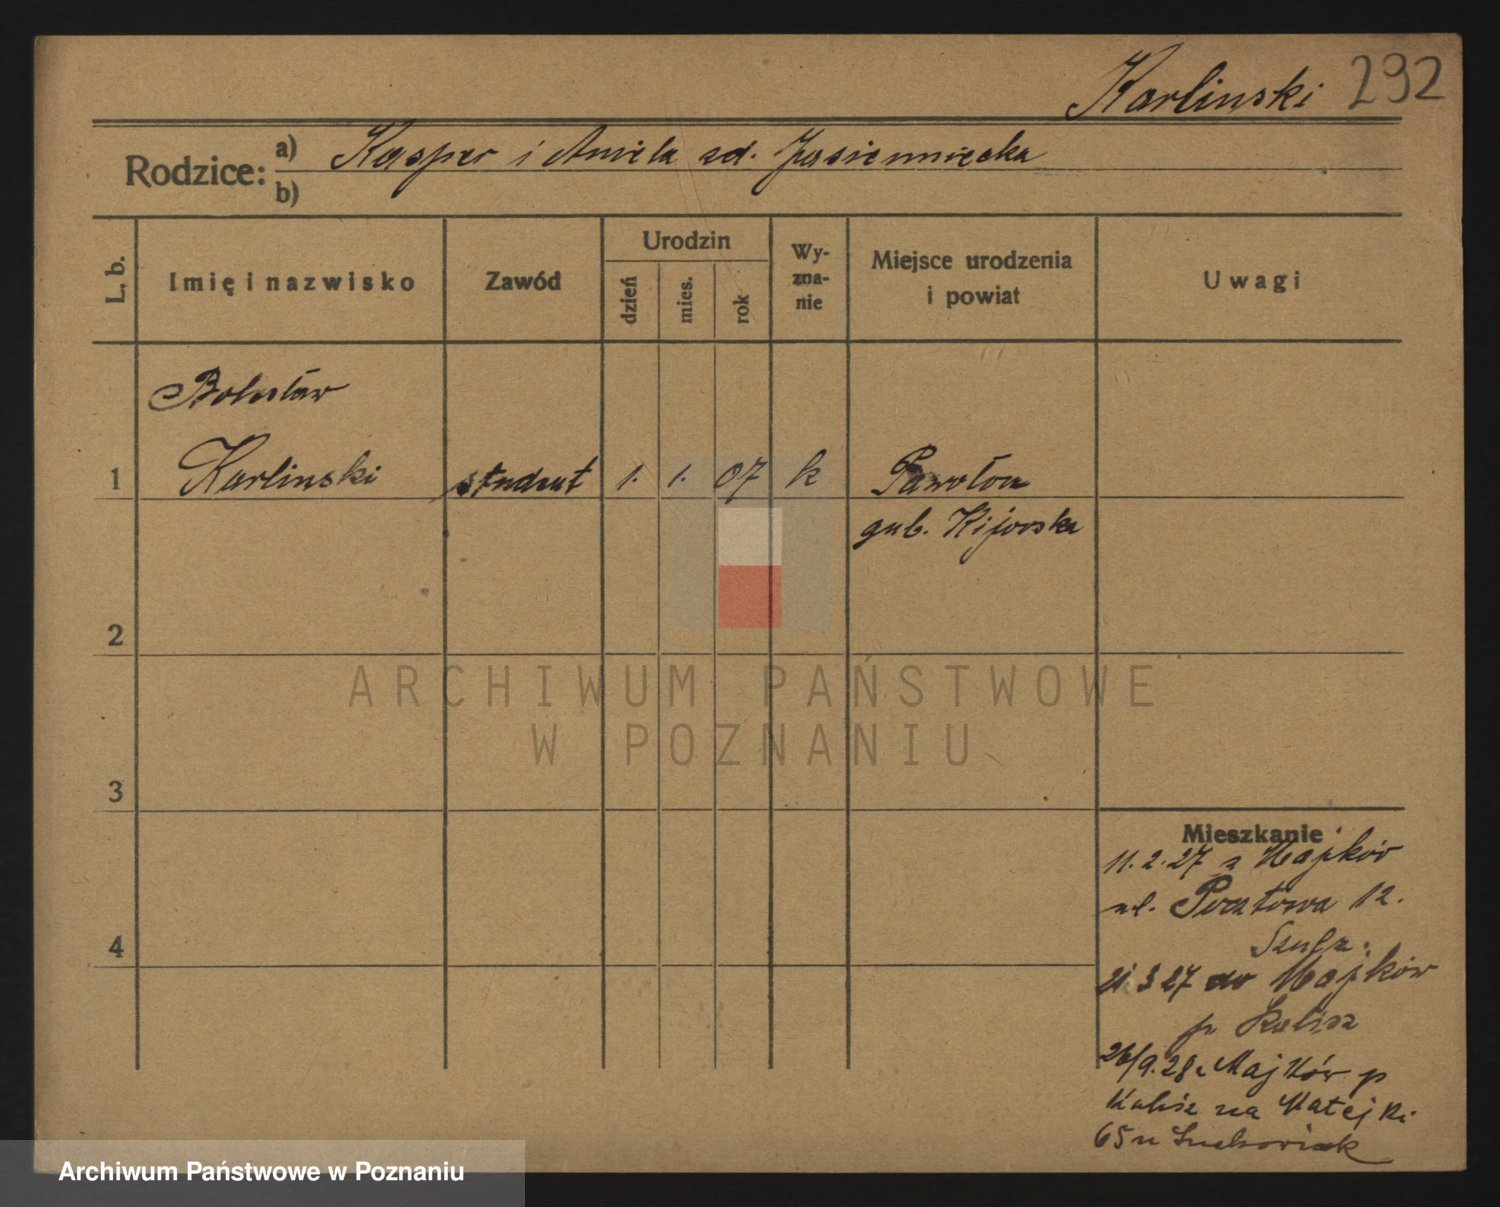 Karlinski 292
Rodzice: a) Kasper i Aniela zd. Jasieniecka
b)
L. b. Imię i nazwisko Zawód Urodzin dzień mies. rok Wy-zna-nie Miejsce urodzenia i powiat Uwagi
Bolesław
1 Karlinski student 1. 1. 07 k Pawołou
gub. Kijowska
2
ARCHIWUM PAŃSTWOWE
W POZNANIU
3
Mieszkanie
11.2.27 z Majków
ul. Pocztowa 12.
Szulz.
4
21 3 27 do Majków
p. Kalisz
26/9.28 z Majków p
Kalisz na Matejki
65 u
Archiwum Państwowe w Poznaniu